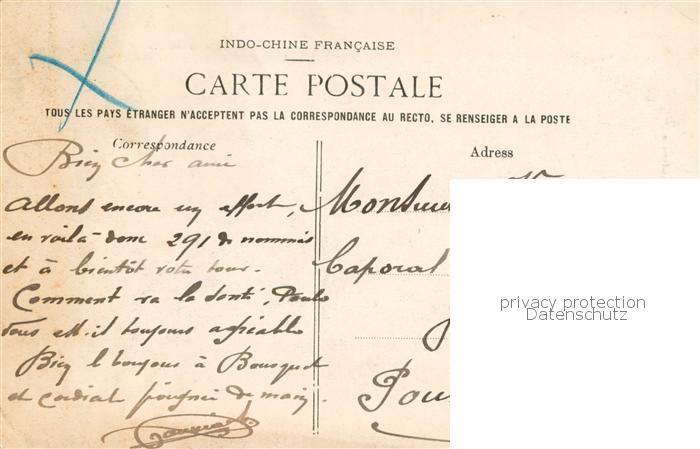 INDO-CHINE FRANÇAISE
CARTE POSTALE
TOUS LES PAYS ÉTRANGER N'ACCEPTENT PAS LA CORRESPONDANCE AU RECTO, SE RENSEIGER A LA POSTE
Correspondance
Adress
Bien cher ami
Allons encore un effort,
en voilà donc 291 de nommés
et à bientôt votre tour.
Comment va la santé,
vous est-il toujours agréable
Bien le bonjour à Bousquet
et cordial poignée de main.
Monsieur
Caporal
privacy protection
Datenschutz